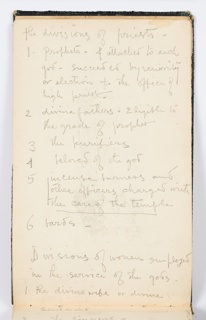 the divisions of priests -
1 Prophets - 4 attached to each
god - succeeded by
or election to the office of
high priest.
2 divine fathers - Eligible to
the grade of prophet
3 the purifiers
4 beloved of the god
5 incense burners and
other officers charged with
the care of the temple
6 bards -
Divisions of women employed
in the service of the gods.
1 the divine wife or divine